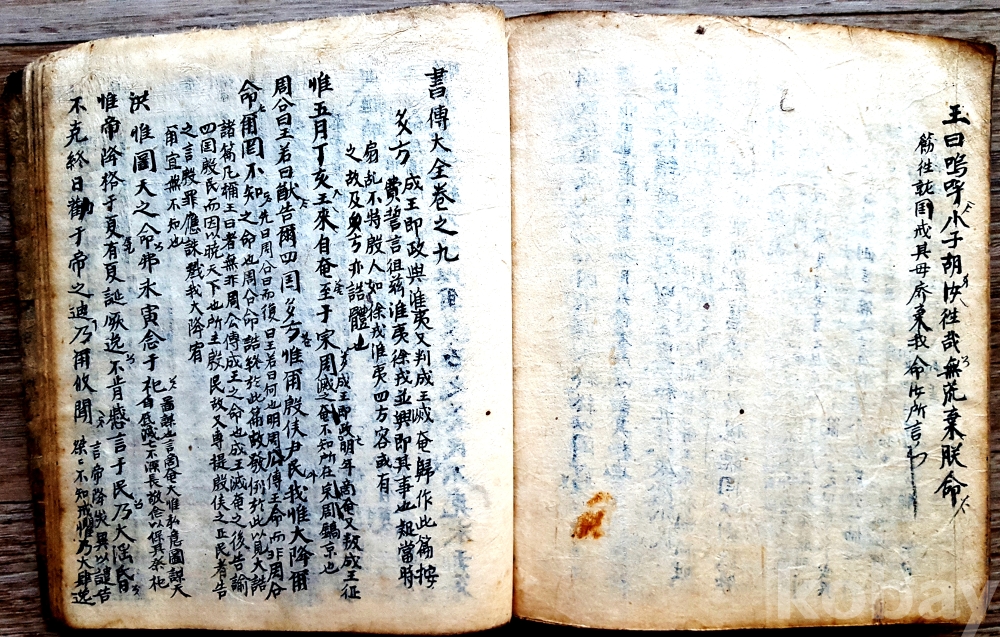 王曰嗚呼小子胡汝往哉無荒棄朕命
篩往就国戒其毋廢棄我命汝所言也
書傳大全卷之九
多方 成王即政與淮夷又判成王滅奄歸作此篇按
費誓言徂茲淮夷徐戎並興即其事也疑當時
扇乱不特殷人如徐戎淮夷四方容或有
之故及多方亦誥體也
惟五月丁亥王來自奄至于宗周 成王即政明年啇奄又叛成王征
滅之奄不知所在宗周鎬京也
周公曰王若曰猷告爾四国多方惟爾殷侯尹民我惟大降爾
命爾罔不知 先曰周公曰而後曰王若曰何也明周公傳王命而非周公
之命也周公命誥終於此篇故發例於此以見大誥
諸篇凡稱王曰者無非周公傳成王之命也成王滅奄之後告諭
四国殷民而因以曉天下也所主殷民故又專提殷侯之正民者告
之言殷罪應誅戮我大降宥
爾宜無不知也
洪惟圖天之命弗永寅念于祀 啚謀也言商奄大惟私意圖謀天
命自厎滅亡不深長敬念以保其祭祀
惟帝降格于夏有夏誕厥逸不肯慼言于民乃大淫昏
不克終日勸于帝之迪乃爾攸聞 言帝降災異以譴告
桀桀不知戒懼乃大肆逸
Kobay